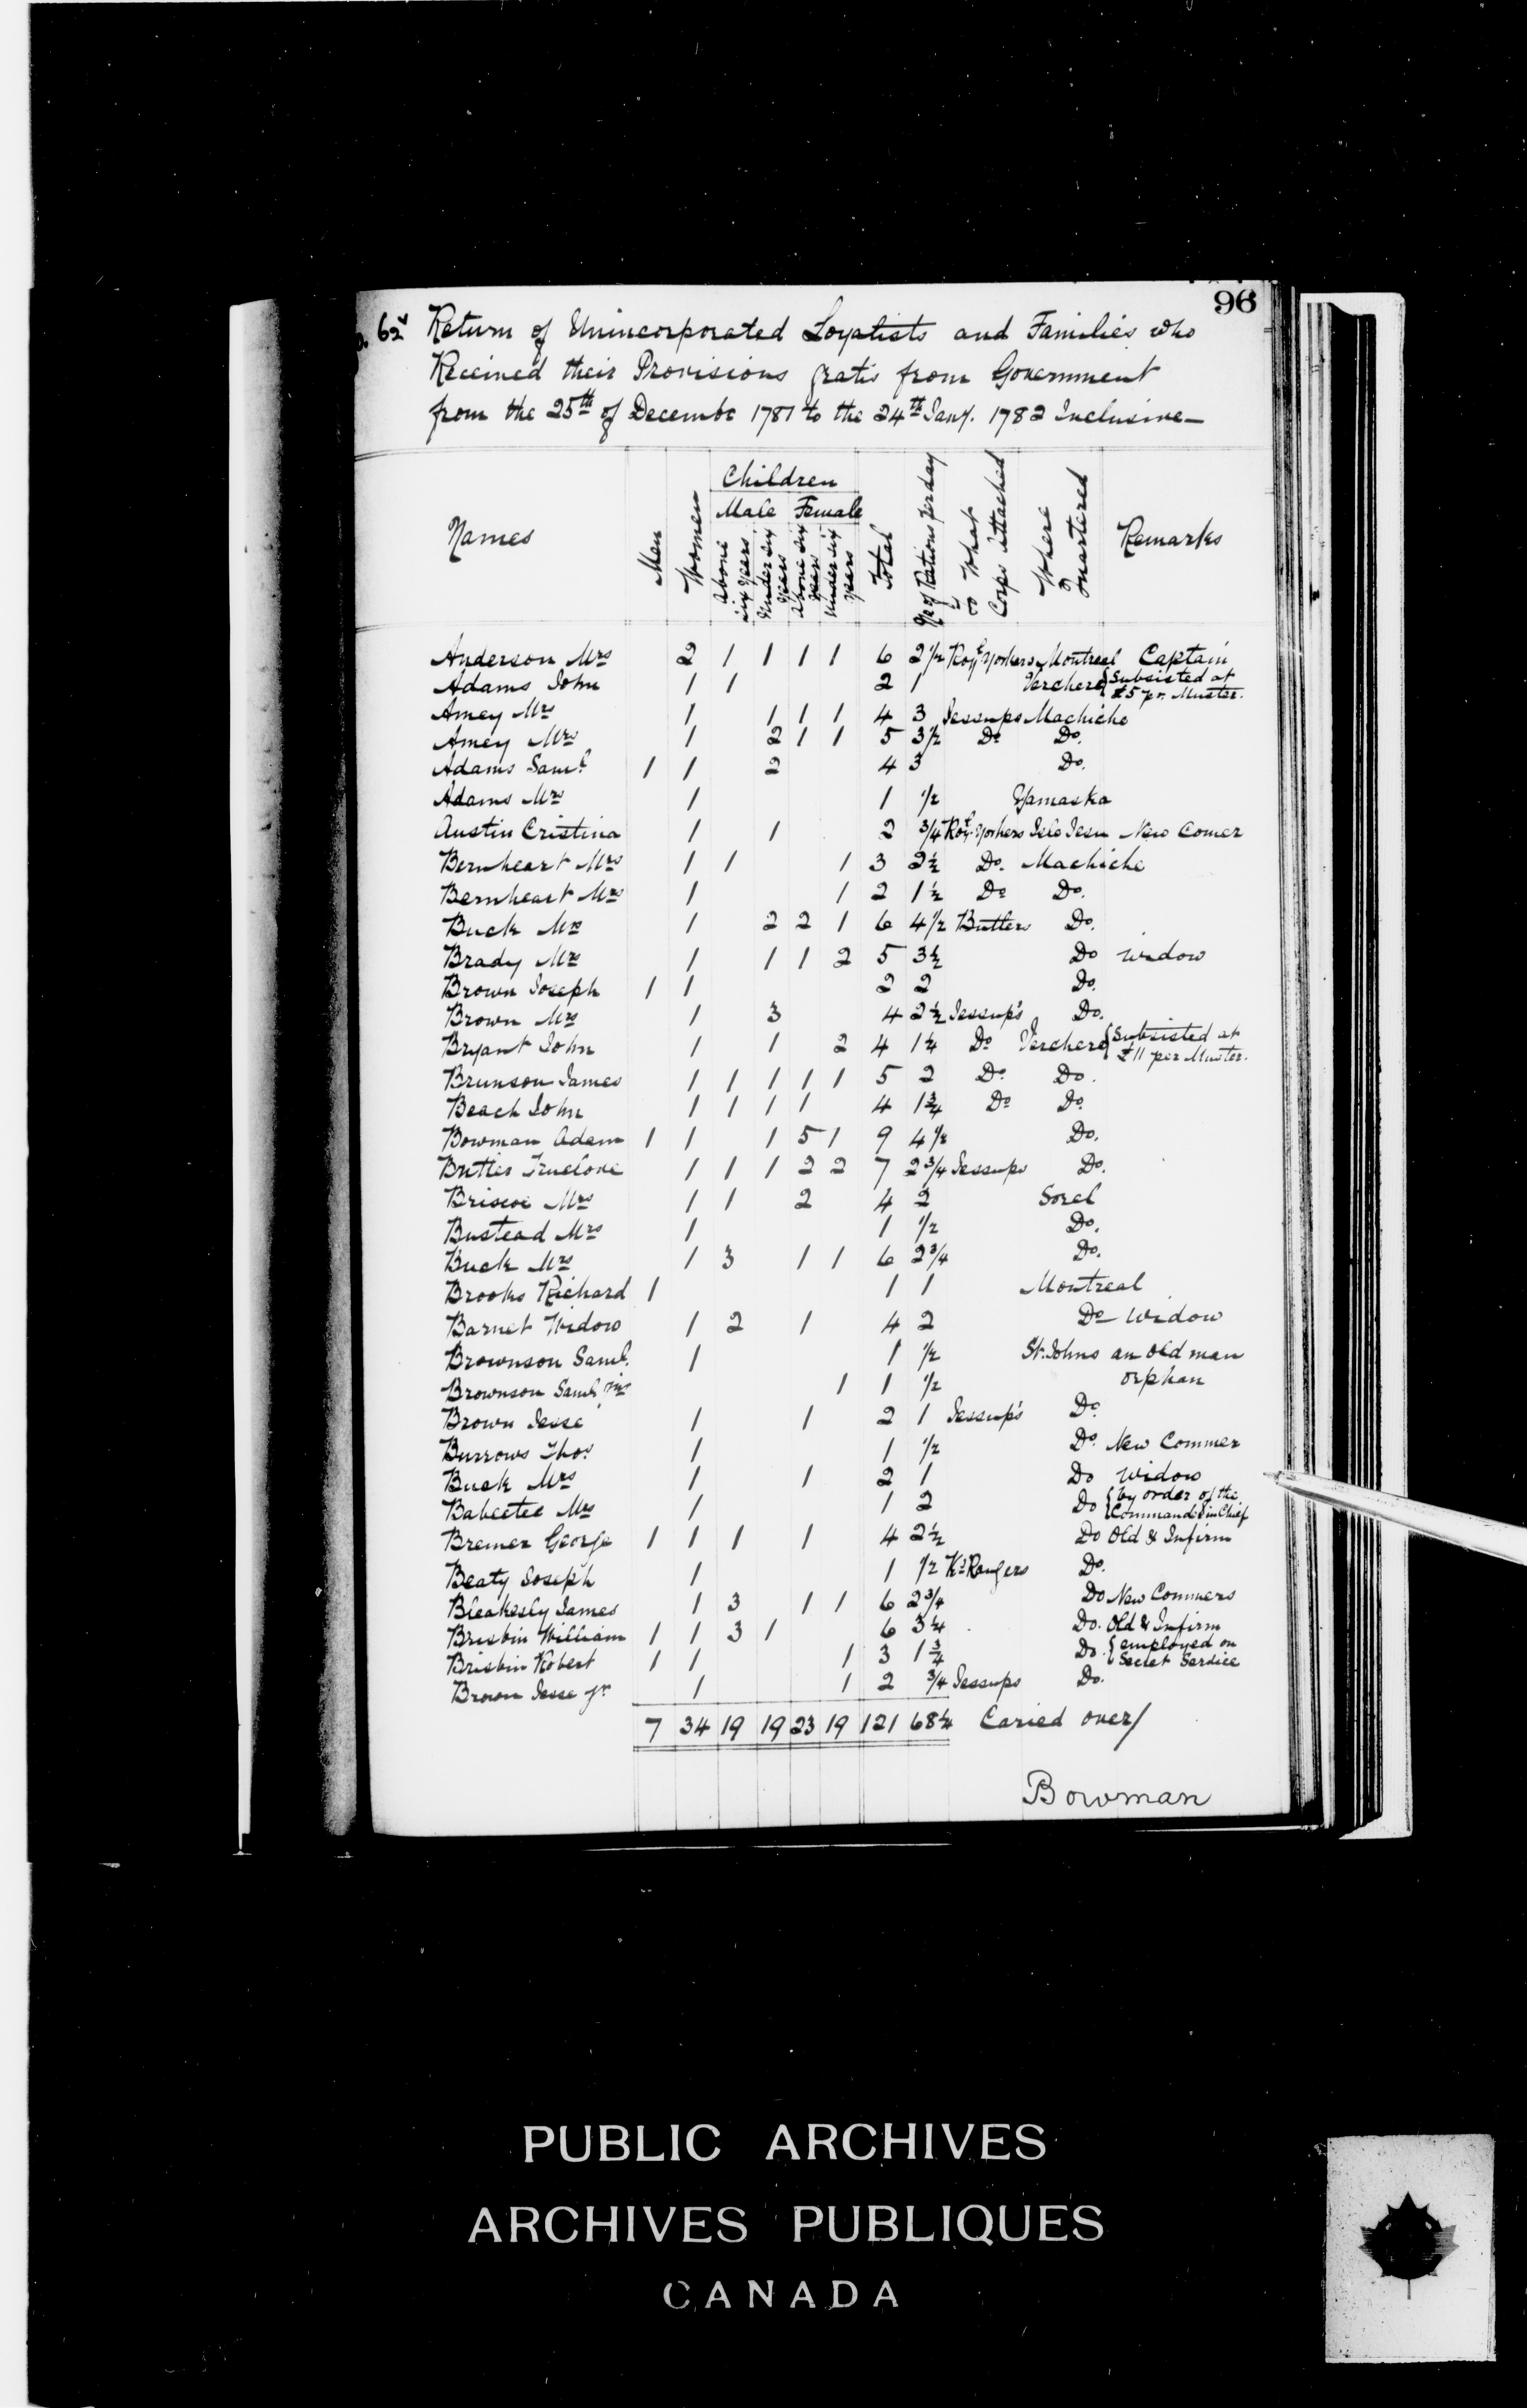 96
p. 62v Return of Unincorporated Loyalists and Families who
Received their Provisions gratis from Government
from the 25th of Decembr 1781 to the 24th Jany. 1782 Inclusive—
Names Men Women Children Male above six years under six years Female above six years under six years Total No of Rations per day To What Corps attached Where Quartered Remarks
Anderson Mrs 2 1 1 1 1 6 2 1/2 Royl Yorkers Montreal Captain
Adams John 1 1 2 1 Verchere { Subsisted at £5 pr. Muster.
Amey Mrs 1 1 1 1 4 3 Jessups Machiche
Amey Mrs 1 2 1 1 5 3 1/2 Do Do.
Adams Saml. 1 1 2 4 3 Do.
Adams Mrs 1 1 1/2 Yamaska
Austin Cristina 1 1 2 3/4 Royl. Yorkers Isle Jesu New Comer
Bernheart Mrs 1 1 1 3 2 1/2 Do. Machiche
Bernheart Mrs 1 1 2 1 1/2 Do Do.
Buck Mrs 1 2 2 1 6 4 1/2 Butlers Do.
Brady Mrs 1 1 1 2 5 3 1/2 Do widow
Brown Joseph 1 1 2 2 Do.
Brown Mrs 1 3 4 2 1/2 Jessup's Do.
Bryant John 1 1 2 4 1 1/4 Do Verchere { Subsisted at £11 per Muster.
Brunson James 1 1 1 1 1 5 2 Do. Do.
Beach John 1 1 1 1 4 1 3/4 Do Do.
Bowman Adam 1 1 1 5 1 9 4 1/2 Do.
Butler Truelove 1 1 1 2 2 7 2 3/4 Jessups Do.
Briscoe Mrs 1 1 2 4 2 Sorel
Bustead Mrs 1 1 1/2 Do.
Buck Mrs 1 3 1 1 6 2 3/4 Do.
Brooks Richard 1 1 1 Montreal
Barnet Widow 1 2 1 4 2 Do widow
Brownson Saml. 1 1 1/2 St. Johns an old man
Brownson Saml. jnr 1 1 1/2 orphan
Brown Jesse 1 1 2 1 Jessup's Do.
Burrows Thos. 1 1 1/2 Do. New Commer
Buck Mrs 1 1 2 1 Do widow
Babeetee Mrs 1 1 2 Do { by order of the Commandr in Chief
Bremer George 1 1 1 1 4 2 1/2 Do Old & Infirm
Beaty Joseph 1 1 1/2 Ks Rangers Do.
Bleakesly James 1 3 1 1 6 2 3/4 Do New Commers
Brisbin William 1 1 3 1 6 3 1/4 Do. Old & Infirm
Brisbin Robert 1 1 1 3 1 3/4 Do. { employed on Secret Service
Brown Jesse jr. 1 1 2 3/4 Jessups Do.
7 34 19 19 23 19 121 68 1/4 Caried over/
Bowman
PUBLIC ARCHIVES
ARCHIVES PUBLIQUES
CANADA